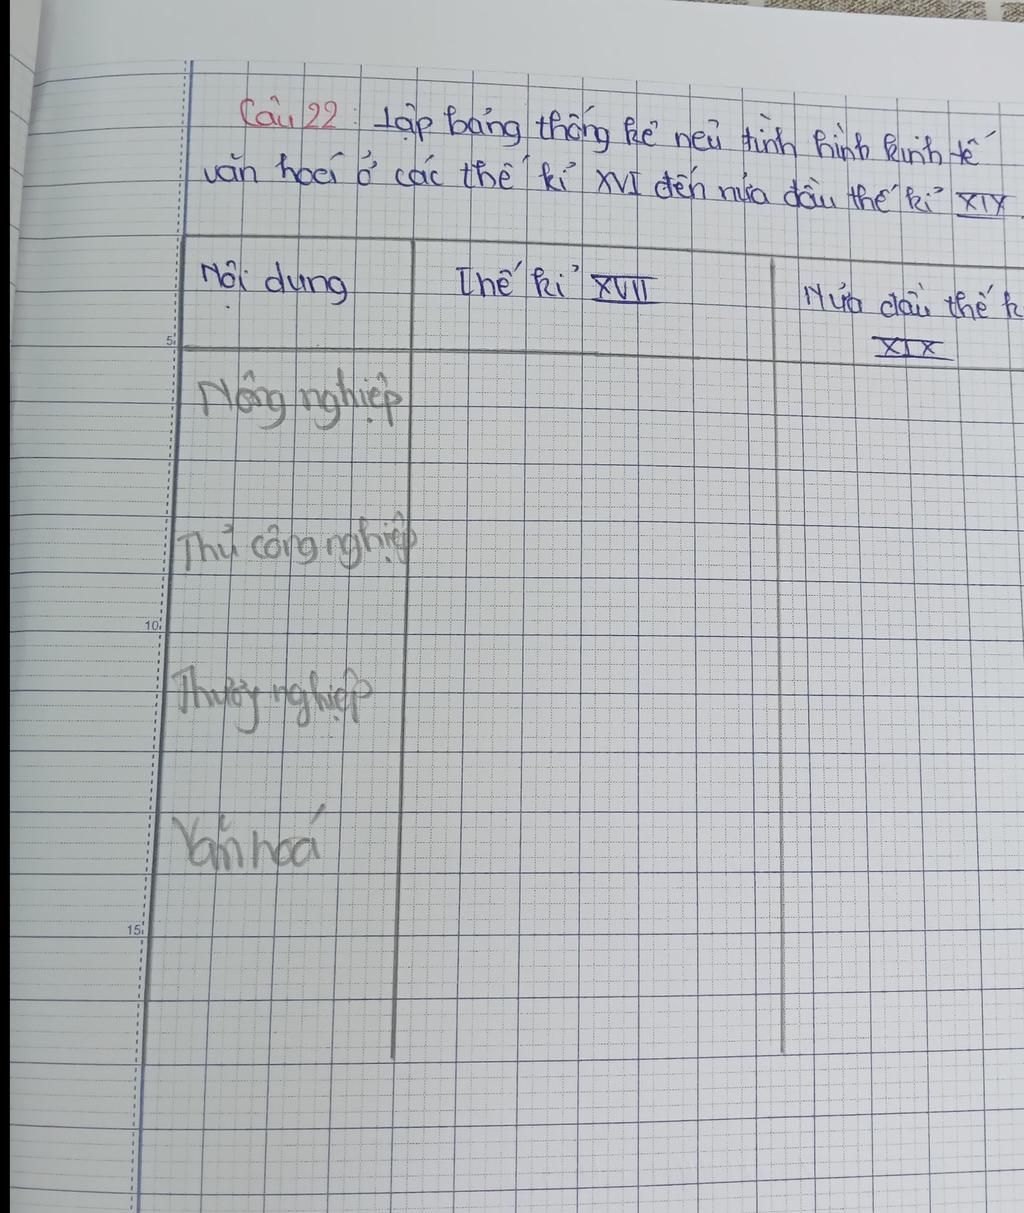 Câu 22: Lập bảng thống kê nêu tình hình kinh tế
văn hoá ở các thế kỉ XVI đến nửa đầu thế kỉ XIX.
Nội dung
Thế kỉ XVII
Nửa đầu thế k
XIX
5
Nông nghiệp
Thủ công nghiệp
10
Thương nghiệp
Văn hoá
15